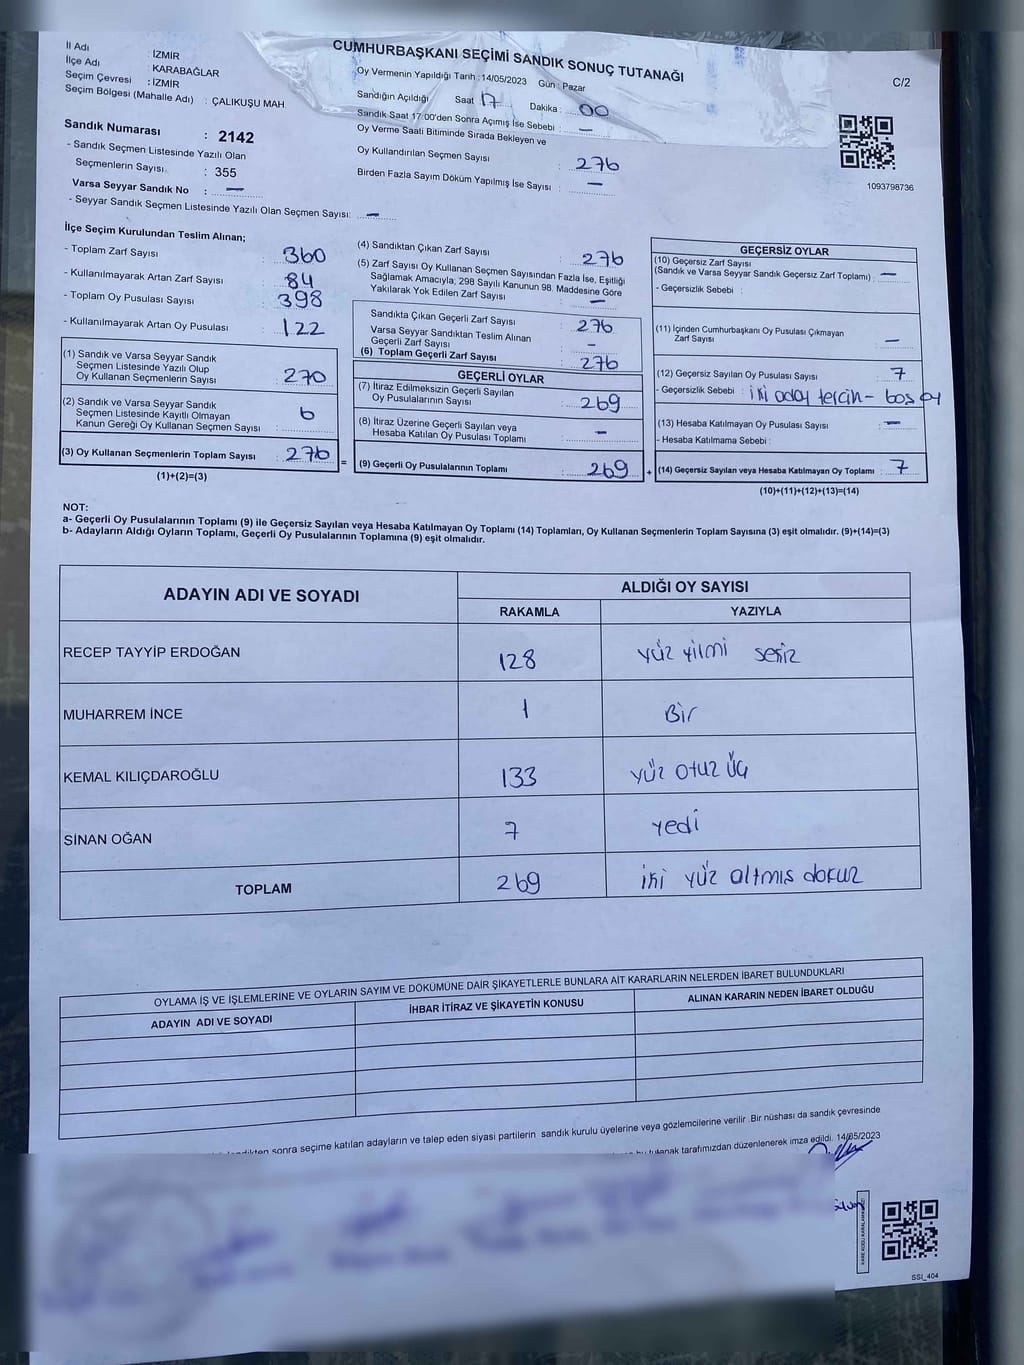 CUMHURBAŞKANI SEÇİMİ SANDIK SONUÇ TUTANAĞI
C/2
İl Adı : İZMİR
İlçe Adı : KARABAĞLAR
Seçim Çevresi : İZMİR
Seçim Bölgesi (Mahalle Adı) : ÇALIKUŞU MAH
Sandık Numarası : 2142
- Sandık Seçmen Listesinde Yazılı Olan
Seçmenlerin Sayısı : 355
Varsa Seyyar Sandık No : —
- Seyyar Sandık Seçmen Listesinde Yazılı Olan Seçmen Sayısı: —
Oy Vermenin Yapıldığı Tarih : 14/05/2023 Gün : Pazar
Sandığın Açıldığı Saat : 17 Dakika : 00
Sandık Saat 17:00'den Sonra Açımış İse Sebebi : —
Oy Verme Saati Bitiminde Sırada Bekleyen ve
Oy Kullandırılan Seçmen Sayısı : 276
Birden Fazla Sayım Döküm Yapılmış İse Sayısı : —
1093798736
İlçe Seçim Kurulundan Teslim Alınan;
- Toplam Zarf Sayısı : 360
- Kullanılmayarak Artan Zarf Sayısı : 84
- Toplam Oy Pusulası Sayısı : 398
- Kullanılmayarak Artan Oy Pusulası : 122
(1) Sandık ve Varsa Seyyar Sandık
Seçmen Listesinde Yazılı Olup
Oy Kullanan Seçmenlerin Sayısı : 270
(2) Sandık ve Varsa Seyyar Sandık
Seçmen Listesinde Kayıtlı Olmayan
Kanun Gereği Oy Kullanan Seçmen Sayısı : 6
(3) Oy Kullanan Seçmenlerin Toplam Sayısı : 276 =
(1)+(2)=(3)
(4) Sandıktan Çıkan Zarf Sayısı : 276
(5) Zarf Sayısı Oy Kullanan Seçmen Sayısından Fazla İse, Eşitliği
Sağlamak Amacıyla; 298 Sayılı Kanunun 98. Maddesine Göre
Yakılarak Yok Edilen Zarf Sayısı : —
Sandıkta Çıkan Geçerli Zarf Sayısı : 276
Varsa Seyyar Sandıktan Teslim Alınan
Geçerli Zarf Sayısı : –
(6) Toplam Geçerli Zarf Sayısı : 276
GEÇERLİ OYLAR
(7) İtiraz Edilmeksizin Geçerli Sayılan
Oy Pusulalarının Sayısı : 269
(8) İtiraz Üzerine Geçerli Sayılan veya
Hesaba Katılan Oy Pusulası Toplamı : —
(9) Geçerli Oy Pusulalarının Toplamı : 269 +
GEÇERSİZ OYLAR
(10) Geçersiz Zarf Sayısı
(Sandık ve Varsa Seyyar Sandık Geçersiz Zarf Toplamı) : —
- Geçersizlik Sebebi :
(11) İçinden Cumhurbaşkanı Oy Pusulası Çıkmayan
Zarf Sayısı : —
(12) Geçersiz Sayılan Oy Pusulası Sayısı : 7
- Geçersizlik Sebebi : iki aday tercih - boş oy
(13) Hesaba Katılmayan Oy Pusulası Sayısı : —
- Hesaba Katılmama Sebebi :
(14) Geçersiz Sayılan veya Hesaba Katılmayan Oy Toplamı : 7
(10)+(11)+(12)+(13)=(14)
NOT:
a- Geçerli Oy Pusulalarının Toplamı (9) ile Geçersiz Sayılan veya Hesaba Katılmayan Oy Toplamı (14) Toplamları, Oy Kullanan Seçmenlerin Toplam Sayısına (3) eşit olmalıdır. (9)+(14)=(3)
b- Adayların Aldığı Oyların Toplamı, Geçerli Oy Pusulalarının Toplamına (9) eşit olmalıdır.
ADAYIN ADI VE SOYADI
ALDIĞI OY SAYISI
RAKAMLA YAZIYLA
RECEP TAYYİP ERDOĞAN 128 yüz yilmi sekiz
MUHARREM İNCE 1 Bir
KEMAL KILIÇDAROĞLU 133 yüz otuz üç
SİNAN OĞAN 7 yedi
TOPLAM 269 iki yüz altmış dokuz
OYLAMA İŞ VE İŞLEMLERİNE VE OYLARIN SAYIM VE DÖKÜMÜNE DAİR ŞİKAYETLERLE BUNLARA AİT KARARLARIN NELERDEN İBARET BULUNDUKLARI
ADAYIN ADI VE SOYADI İHBAR İTİRAZ VE ŞİKAYETİN KONUSU ALINAN KARARIN NEDEN İBARET OLDUĞU
sonra seçime katılan adayların ve talep eden siyasi partilerin sandık kurulu üyelerine veya gözlemcilerine verilir .Bir nüshası da sandık çevresinde
bu tutanak tarafımızdan düzenlenerek imza edildi. 14/05/2023
SSI_404